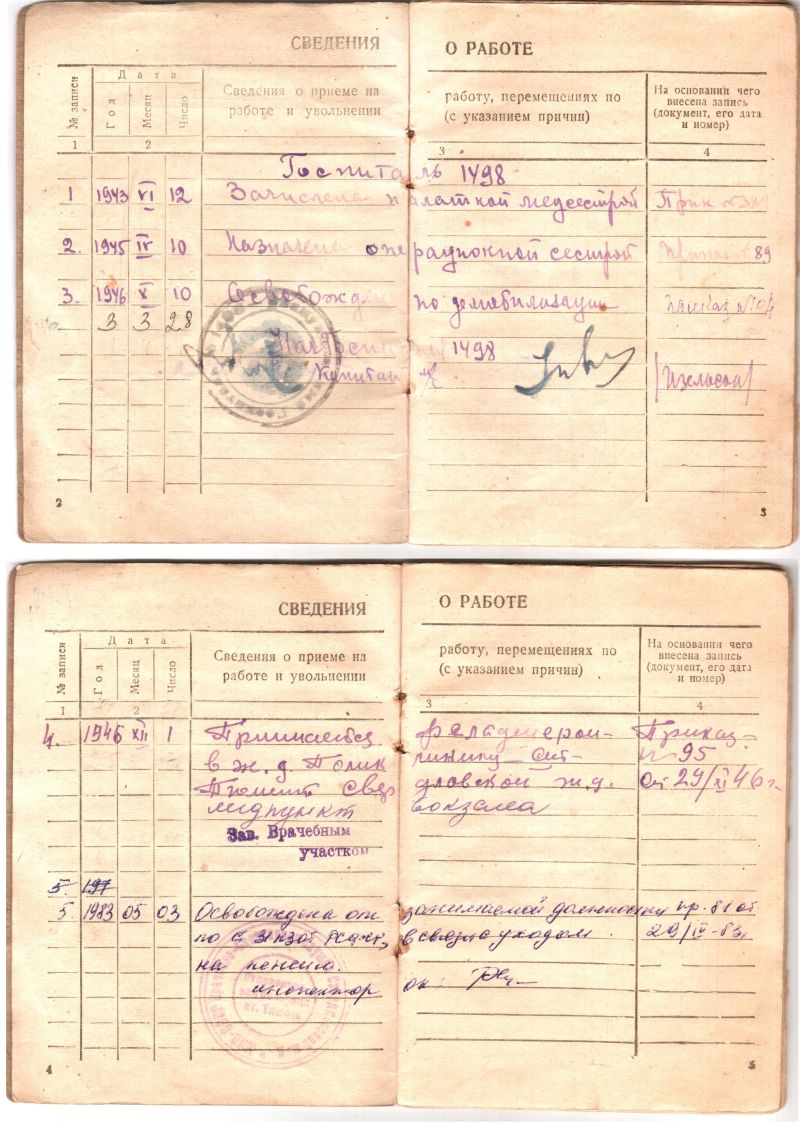 СВЕДЕНИЯ О РАБОТЕ
№ записи
Дата
Год
Месяц
Число
Сведения о приеме на работу, перемещениях по
работе и увольнении (с указанием причин)
На основании чего
внесена запись
(документ, его дата
и номер)
1 2 3 4
Госпиталь 1498
1 1943 VI 12 Зачислена палатной медсестрой Прик №
2. 1945 IV 10 Назначена операционной сестрой Приказ № 89
3. 1946 X 10 Освобожд по демобилизации приказ №104
3 3 28
Нач Госпит 1498
Капитан м/с
2
3
СВЕДЕНИЯ О РАБОТЕ
№ записи
Дата
Год
Месяц
Число
Сведения о приеме на работу, перемещениях по
работе и увольнении (с указанием причин)
На основании чего
внесена запись
(документ, его дата
и номер)
1 2 3 4
4. 1946 XII 1 Принимается Приказ
в ж.д. Полик №95
от 29/XI 46 г.
ж.д.
медпункт вокзала
Зав. Врачебным
участком
5. 197
5. 1983 05 03 Освобождена от занимаемой должности пр. 81 от
по с в связи с уходом 29/IV-83
на пенсию.
инспектор ок:
4
5